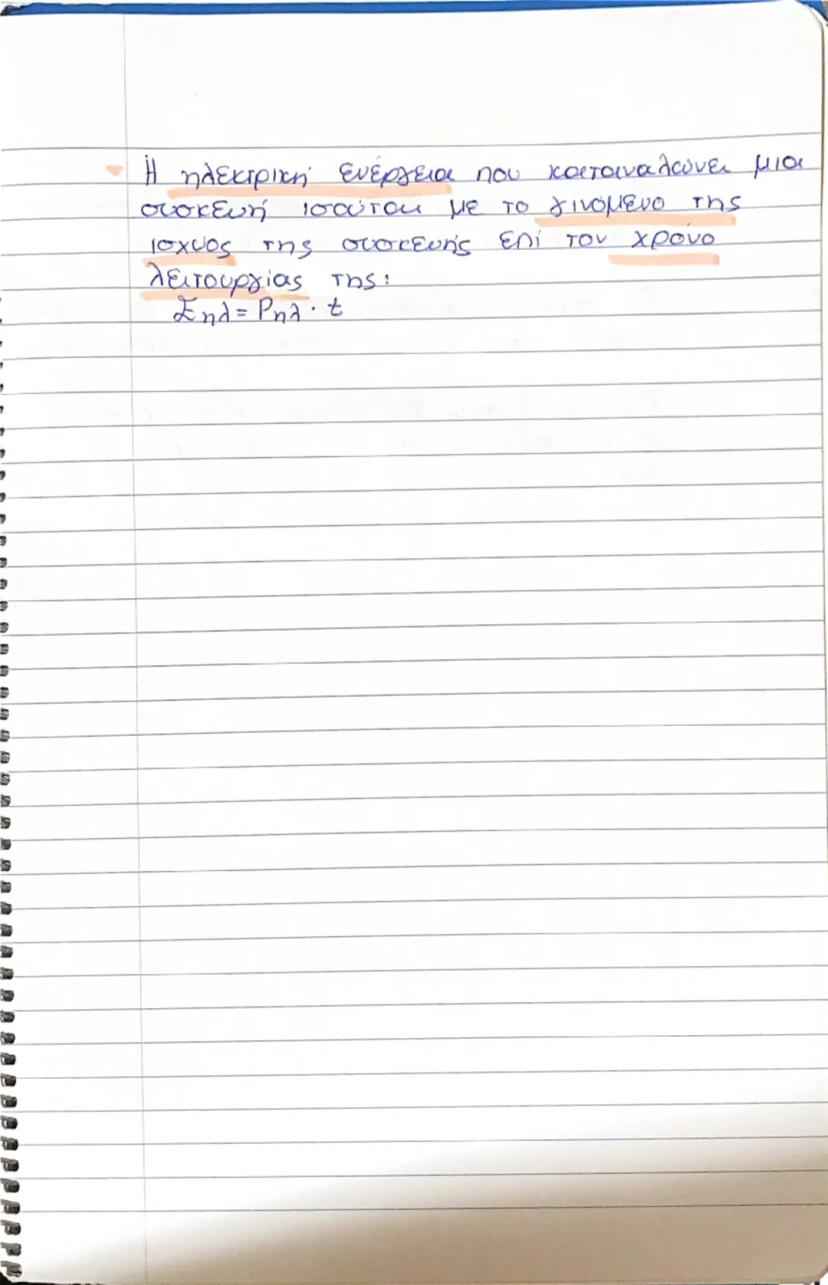 Η ηλεκτρική ενέργεια που καταναλώνει μια
συσκευή ισούται με το γινόμενο της
ισχύος της συσκευής επί τον χρόνο
λειτουργίας της:
Εηλ = Pηλ · t